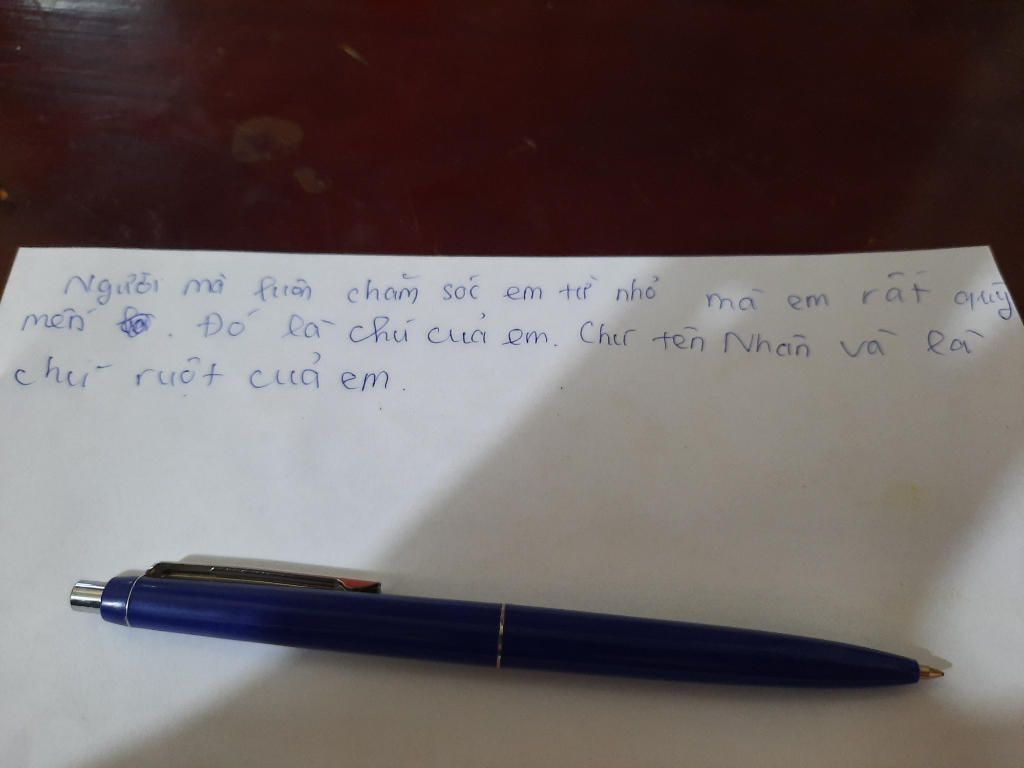 Người mà luôn chăm sóc em từ nhỏ mà em rất quý
mến. Đó là chú của em. Chú tên Nhân và là
chú ruột của em.